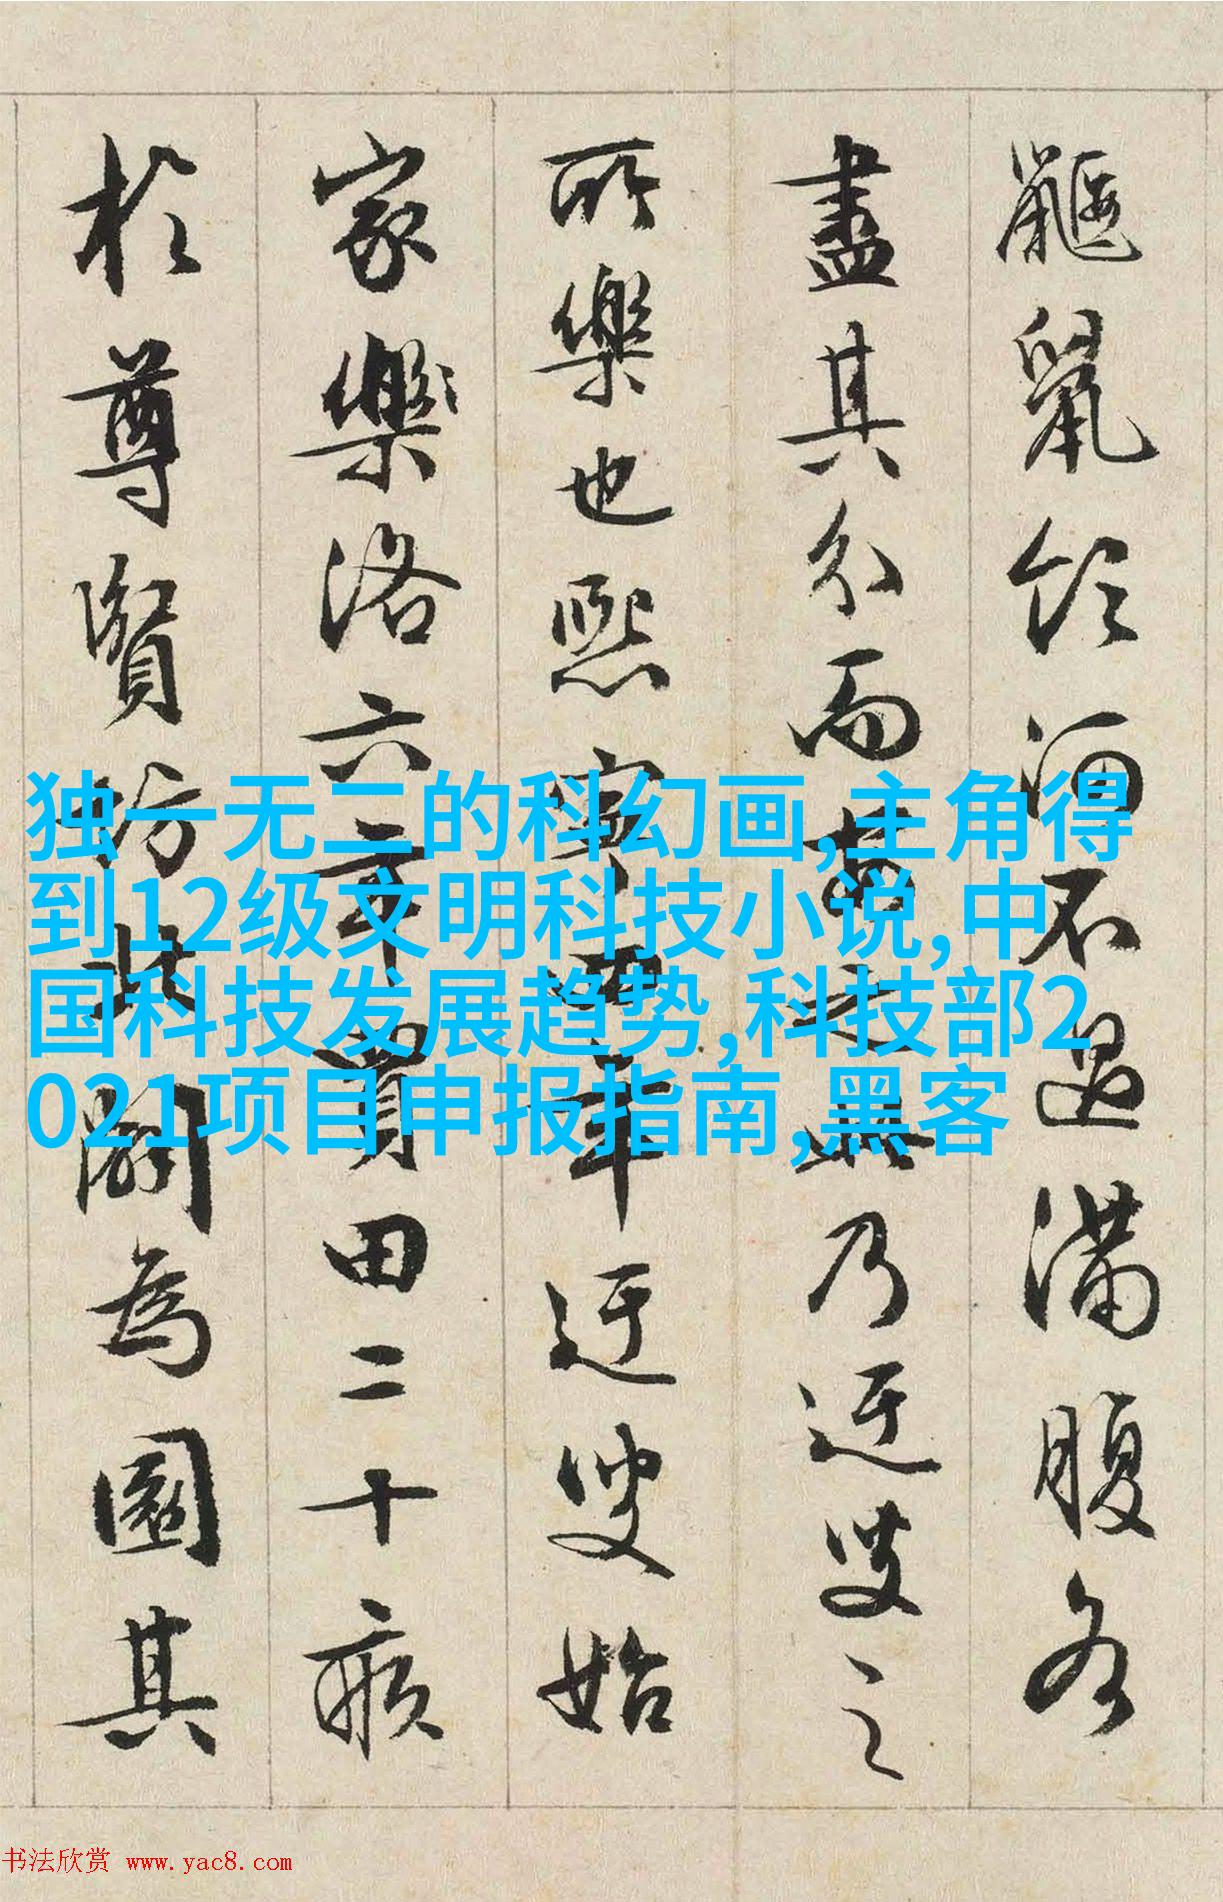 鼴鼠飲河不過滿腹各
盡其分而安之此乃迂叟之
所樂也熙寧四年迂叟始
家樂洛六年買田二十畝
於尊賢坊北闢為園其
独一无二的科幻画,主角得
到12级文明科技小说,中
国科技发展趋势,科技部2
021项目申报指南,黑客
书法欣赏 www.yac8.com